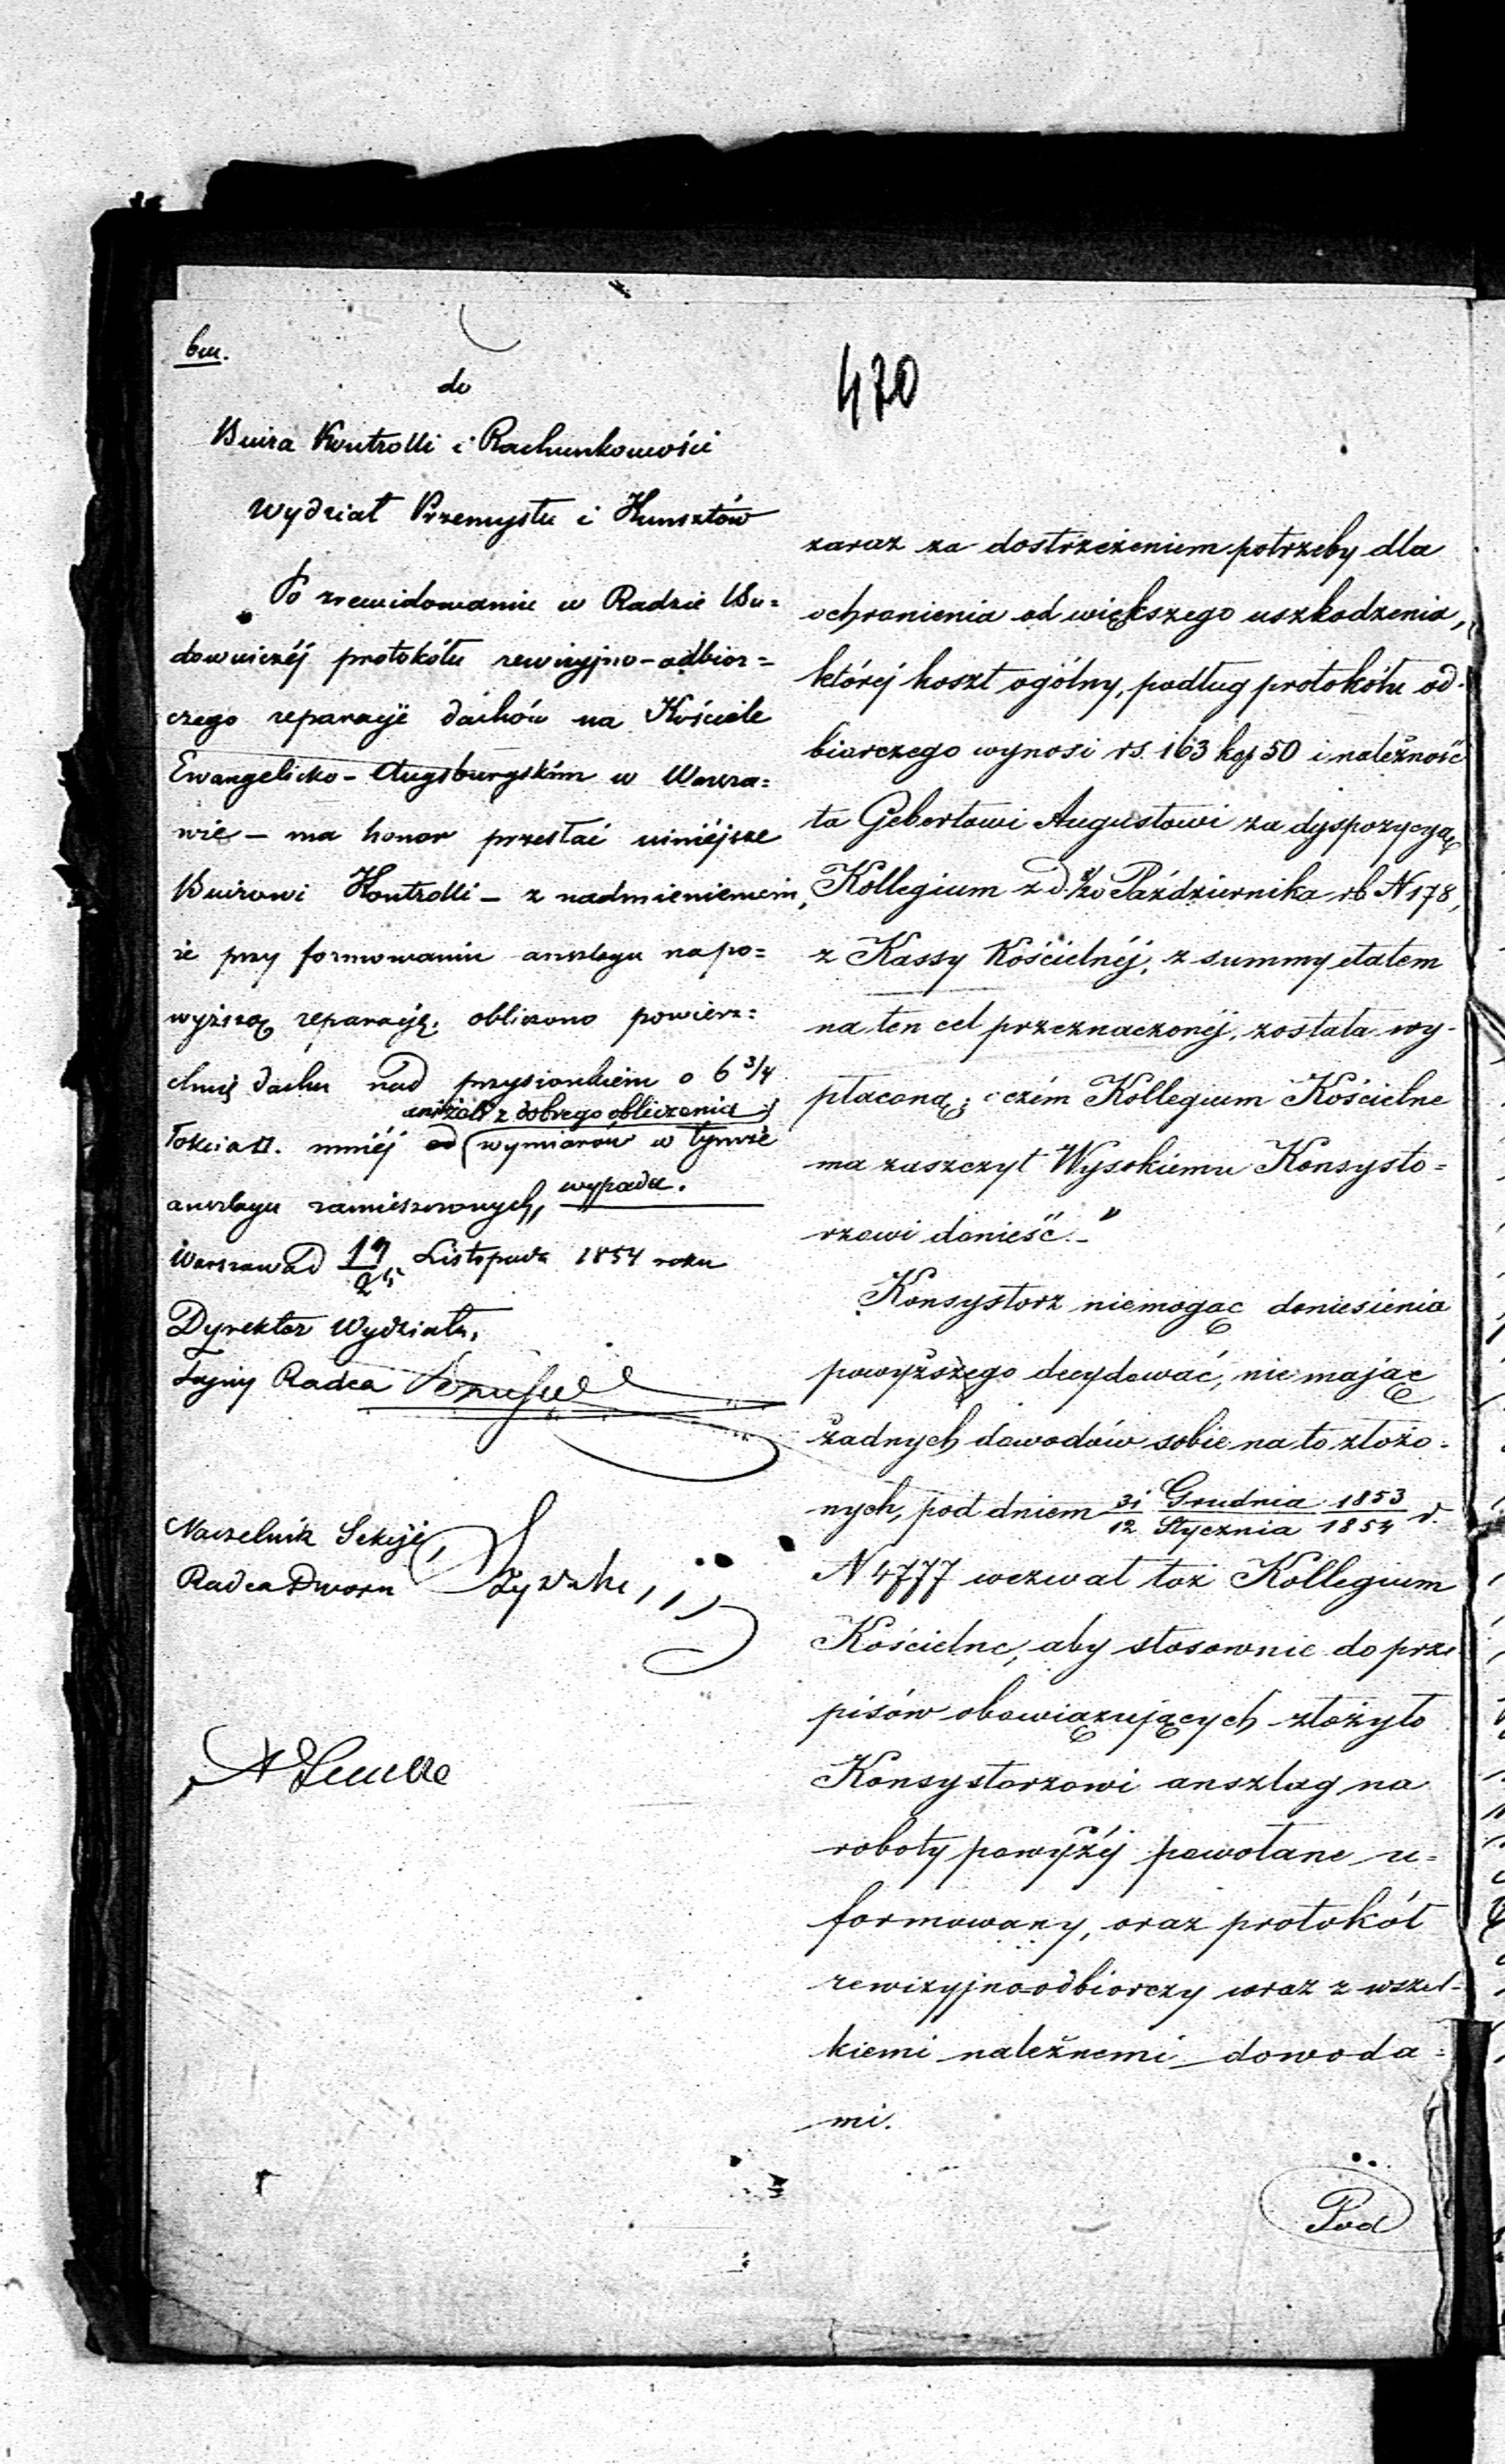 bm.
do
Biura Kontrolli i Rachunkowości
Wydział Przemysłu i Kunsztów
Po zrewidowaniu w Radzie Bu=
downiczéj protokółu rewizyjno-odbior=
czego reparacyi dachów na Kościele
Ewangelicko-Augsburgskim w Warsza=
wie – ma honor przesłać niniéjsze
Biurowi Kontrolli – z nadmienieniem,
że przy formowaniu anszlagu na po=
wyższą reparacyę, obliczono powierz=
chnię dachu nad przysionkiem o 6 3/4
aniżeli z dobrego obliczenia
łokcia □. mniéj od wymiarów w tymże
anszlagu zamieszczonych, wypada.
Warszawa d 19/25 Listopada 1854 roku
Dyrektor Wydziału,
Tajny Radca
Naczelnik Sekcyi,
Radca Dworu
470
zaraz za dostrzeżeniem potrzeby dla
ochronienia od większego uszkodzenia,
któréj koszt ogólny, podług protokółu od-
biorczego wynosi rs. 163 kop 50 i należność
ta Gebertowi Augustowi za dyspozycyą
Kollegium z d. 8/20 Października rb N 178,
z Kassy Kościelnéj, z summy etatem
na ten cel przeznaczonéj, została wy-
płaconą; o czém Kollegium Kościelne
ma zaszczyt Wysokiemu Konsysto=
rzowi donieść.–"
Konsystorz niemogąc doniesienia
powyższego decydować, nie mając
żadnych dowodów sobie na to złożo=
nych, pod dniem 31 Grudnia 1853 / 12 Stycznia 1854 r.
N 4777 wezwał toż Kollegium
Kościelne, aby stosownie do prze
pisów obowiązujących złożyło
Konsystorzowi anszlag na
roboty powyżéj powołane u=
formowany, oraz protokół
rewizyjno-odbiorczy wraz z wszel-
kiemi należnemi dowoda=
mi.
Pod